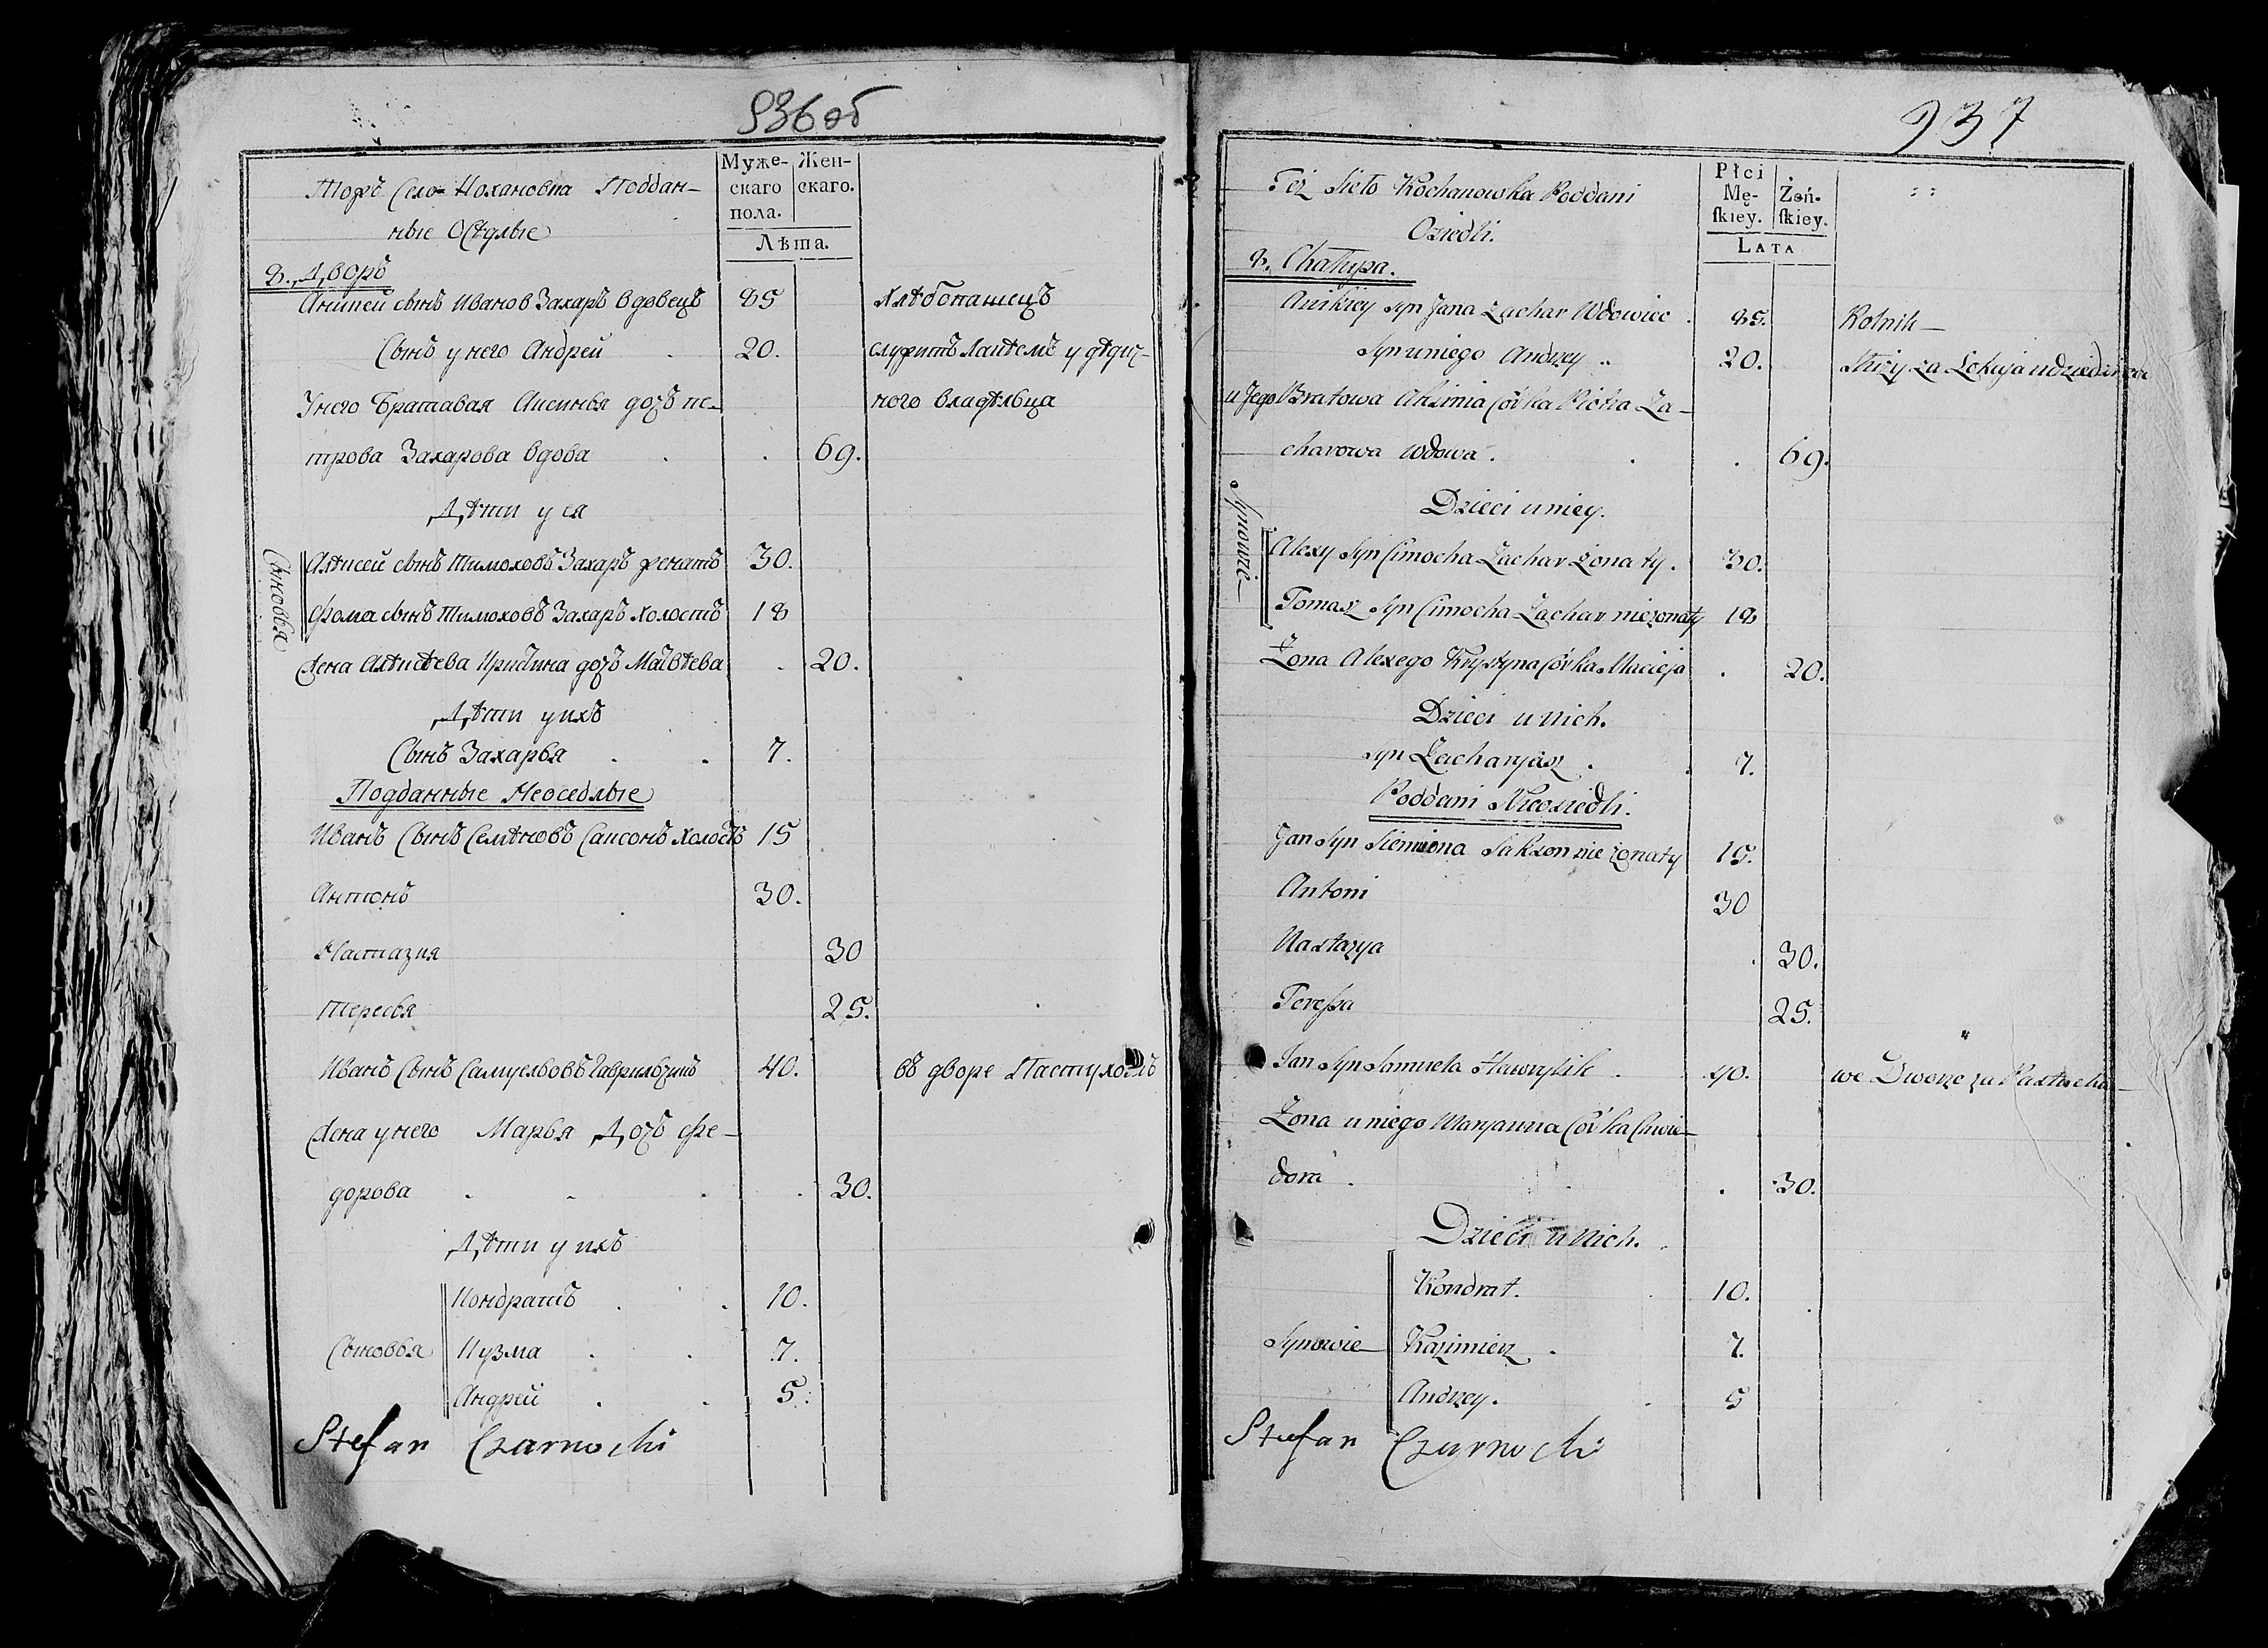 936 об
Тожъ Село Кохановка Поддан-
ные Осѣдлые
Муже-
скаго
пола.
Жен-
скаго.
Лѣта.
8. Дворъ
Аникей сынъ Иванов Захаръ вдовецъ 85 хлѣбопашецъ
Сынъ у него Андрей . 20. служитъ лакѣемъ у дѣдич-
Унего Братавая Аксинья дочь пе- ного владѣльца
трова Захарова вдова . . 69.
Дѣти у ея
Сыновья
Алѣксей сынъ Тимоховъ Захаръ женатъ 30.
Фома сынъ Тимоховъ Захаръ холостъ 18
Жена Алѣксѣева Кристина дочь Матвѣева . 20.
Дѣти у ихъ
Сынъ Захарья . . 7.
Подданные Неоседлые
Иванъ Сынъ Семѣновъ Саксонъ холостъ 15
Антонъ 30.
Настазия 30
Тересья 25.
Иванъ Сынъ Самуельовъ Гаврильчикъ 40. въ дворе Пастухомъ
Жена у него Марья Дочь Фе-
дорова . . . . 30.
Дѣти у ихъ
Кондратъ . . 10.
Сыновья Кузма . . 7.
Андрей . . 5.
Stefan Czarnocki
937
Też Sioło Kochanowka Poddani
Osiedli.
Płci
Mę-
ſkiey.
Żeń-
ſkiey.
LATA
8. Chałupa.
Anikiey syn Jana Zachar Wdowiec . 85. Rolnik
Syn u niego Andrzey .. 20. Służy za Lokaja u dziedzica
u Jego Bratowa Aksinia Córka Piotra Za-
charowa Wdowa . . . 69.
Dzieci u niey.
Synowie
Alexy Syn Cimocha Zachar żonaty. 30.
Tomasz Syn Cimocha Zachar nieżonaty 18
Żona Alexego Krystyna Córka Macieja . 20.
Dzieci u nich.
syn Zacharyasz . . 7.
Poddani Nieosiedli.
Jan Syn Siemiona Sakson nie żonaty 15.
Antoni 30
Nastazya . 30.
Tereſsa 25.
Jan Syn Samuela Hawrylik . 40. we Dworze za Pastucha
Żona u niego Maryanna Córka Chwie-
dora . . . 30.
Dzieci u nich.
Kondrat. . 10.
Synowie Kazimierz . 7.
Andrzey. . 5
Stefan Czarnocki